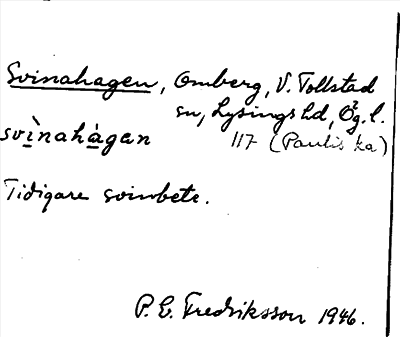 Svinahagen, Omberg, V. Tollstad
sn, Lysings hd, Ög. l.
svìnahàgan 117 (Paulis ka)
Tidigare svinbete.
P. E. Fredriksson 1946.